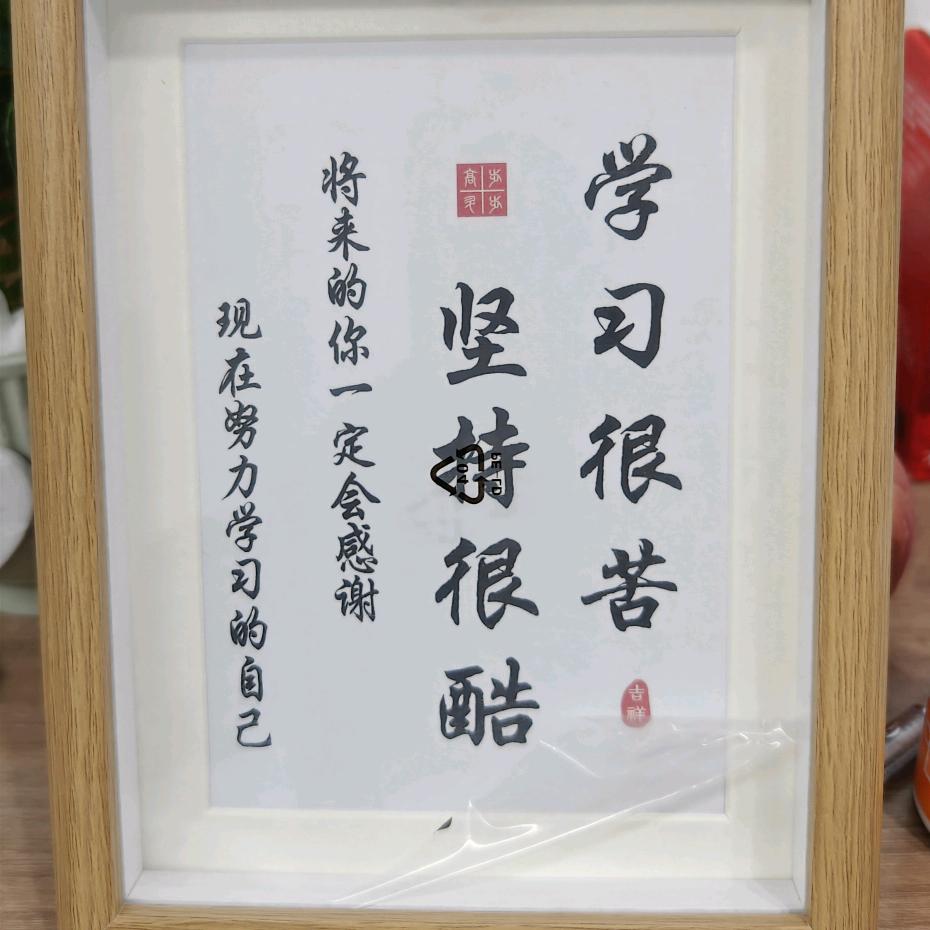 学习很苦
吉祥
步步高升
坚持很酷
将来的你一定会感谢
现在努力学习的自己